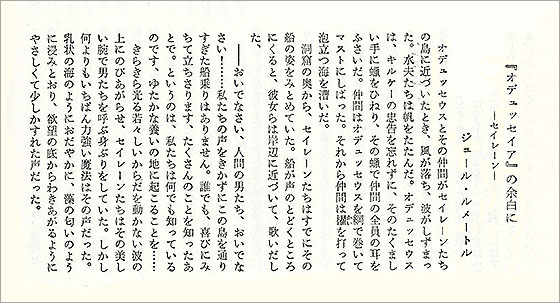 『オデュッセイア』の余白に
―セイレーン―
ジュール・ルメートル
オデュッセウスとその仲間がセイレーンたち
の島に近づいたとき、風が落ち、波がしずまっ
た。水夫たちは帆をたたんだ。オデュッセウス
は、キルケーの忠告を忘れずに、そのたくまし
い手に蠟をひねり、その蠟で仲間の全員の耳を
ふさいだ。仲間はオデュッセウスを綱で巻いて
マストにしばった。それから仲間は櫂を打って
泡立つ海を漕いだ。
洞窟の奥から、セイレーンたちはすでにその
船の姿をみとめていた。船が声のとどくところ
にくると、彼女らは岸辺に近づいて、歌いだし
た。
――おいでなさい、人間の男たち、おいでな
さい！……私たちの声をきかずにこの島を通り
すぎた船乗りはありません。誰でも、喜びにみ
ちて立ちさります、たくさんのことを知ったあ
とで。というのは、私たちは何でも知っている
のです、ゆたかな養いの地に起こることを……
きらきら光る若々しいからだを動かない波の
上にのびあがらせ、セイレーンたちはその美し
い腕で男たちを呼ぶ身ぶりをしていた。しかし
何よりもいちばん力強い魔法はその声だった。
乳状の海のようにおだやかに、藻の匂いのよう
に浸みとおり、欲望の底からわきあがるように
やさしくて少しかすれた声だった。